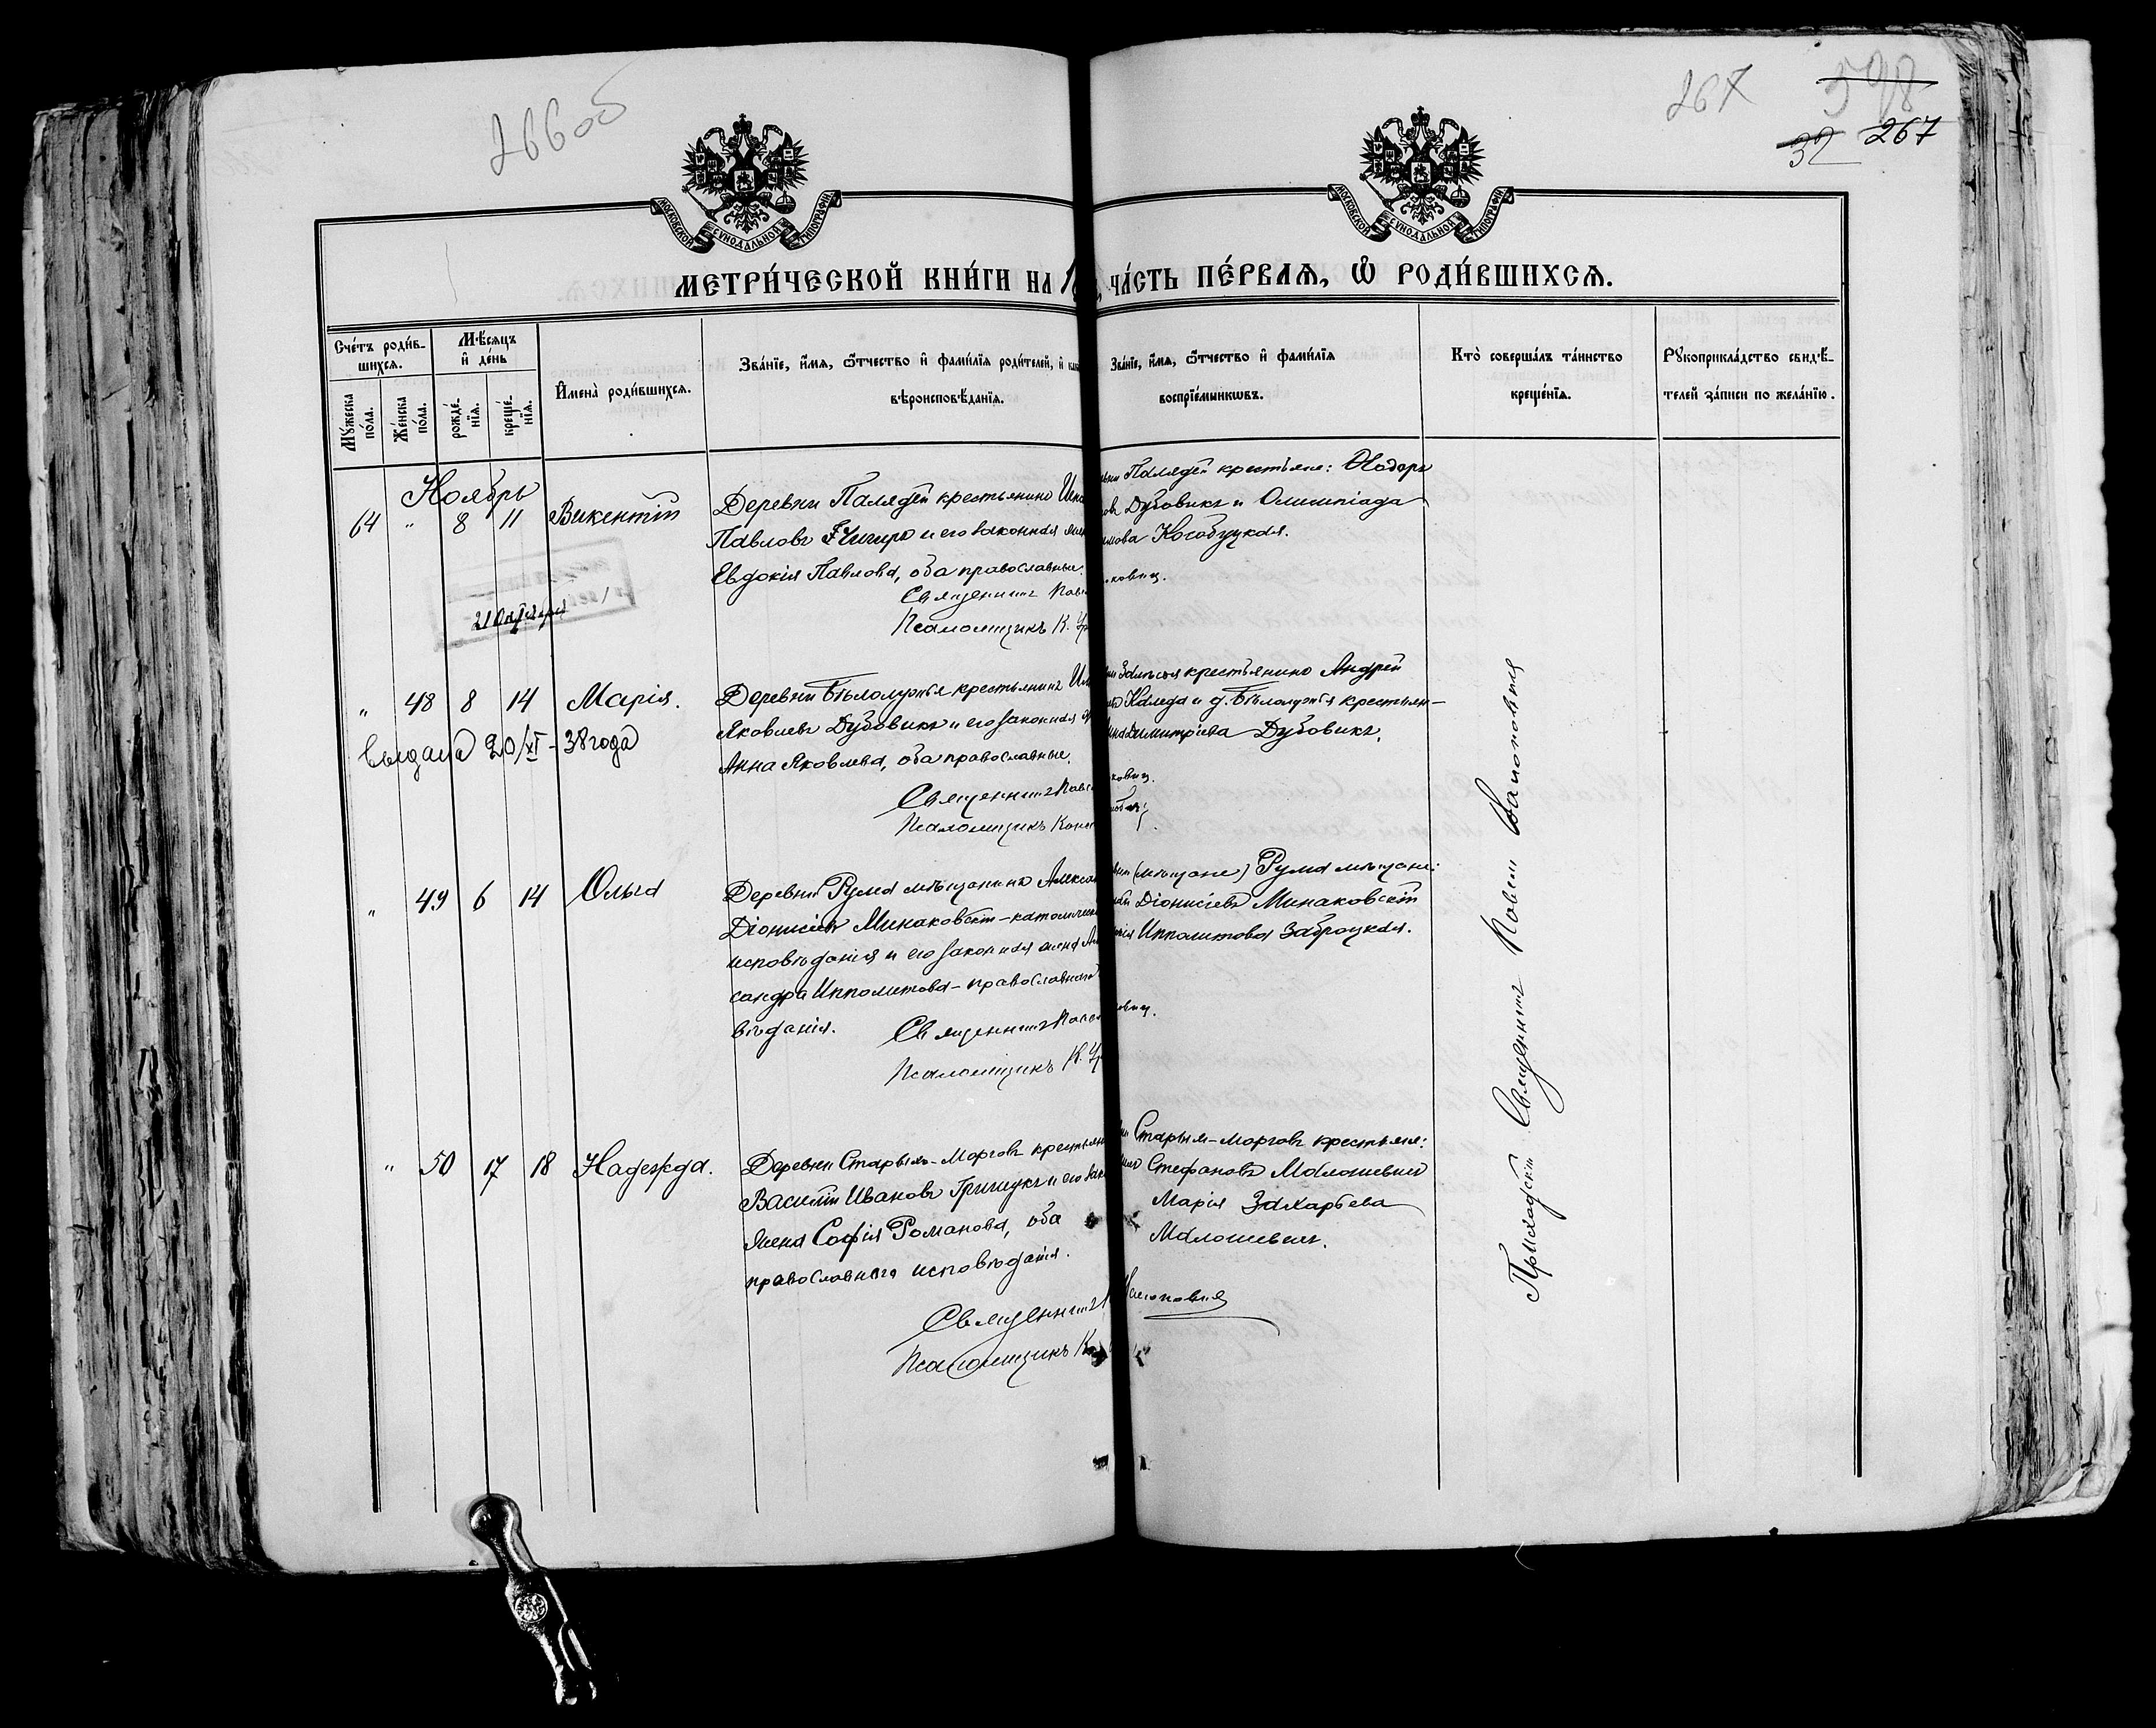 266об
267
598
32 267
МОСКОВСКОЙ СѴНОДАЛЬНОЙ ТИПОГРАФІИ.
МОСКОВСКОЙ СѴНОДАЛЬНОЙ ТИПОГРАФІИ.
МЕТРИ́ЧЕСКОЙ КНИ́ГИ НА 1
ЧА́СТЬ ПЕ́РВАѦ, Ѡ҆ РОДИ́ВШИХСѦ.
Сче́тъ роди́в-
шихсѧ.
Мꙋ́жеска по́ла.
Же́нска по́ла.
Мѣ́сѧцъ и҆ де́нь
рожде́-нїѧ.
креще́-нїѧ.
И҆мена̀ роди́вшихсѧ.
Зва́нїе, и҆́мѧ, ѻ҆́тчество и҆ фами́лїѧ роди́телей, и҆
вѣроисповѣ́данїѧ.
Зва́нїе, и҆́мѧ, ѻ҆́тчество и҆ фами́лїѧ
воспрїе́мникѡвъ.
Кто̀ соверша́лъ та́инство
креще́нїѧ.
Рꙋкоприкла́дство свидѣ́-
телей за́писи по жела́нїю.
Ноябрь
64 " 8 11 Викентій
Деревни Палядей крестьянинъ
Павловъ Чигиръ и его законная
Евдокія Павлова, оба православные.
Священникъ
Псаломщикъ К.
Палядей крестьяне: Ѳодоръ
Дубовикъ и Олимпіада
Кособуцкая.
" 48 8 14 Марія.
выдана 20/XI-38 года
Деревни Бѣлолужья крестьянинъ
Яковлевъ Дубовикъ и его законная
Анна Яковлева, оба православные.
Священникъ
Псаломщикъ
Залѣсья крестьянинъ Андрей
Каледа и д. Бѣлолужья крестьян-
Димитріева Дубовикъ.
" 49 6 14 Ольга
Деревни Рума мѣщанинъ
Діонисіевъ Минаковскій - католическ
исповѣданія и его законная жена
сандра Ипполитова - православнаго
вѣданія.
Священникъ
Псаломщикъ К.
(мѣщане) Рума мѣщане:
Діонисіевъ Минаковскій
Ипполитова Заброцкая.
" 50 17 18 Надежда.
Деревни Старыхъ-Морговъ
Василій Ивановъ Гришукъ и его
жена Софія Романова, оба
православнаго исповѣданія.
Священникъ
Псаломщикъ
Старыхъ-Морговъ крестьяне:
Стефановъ Малошевичъ
Марія Захарьева
Малошевичъ.
Приходскій Священникъ Павелъ